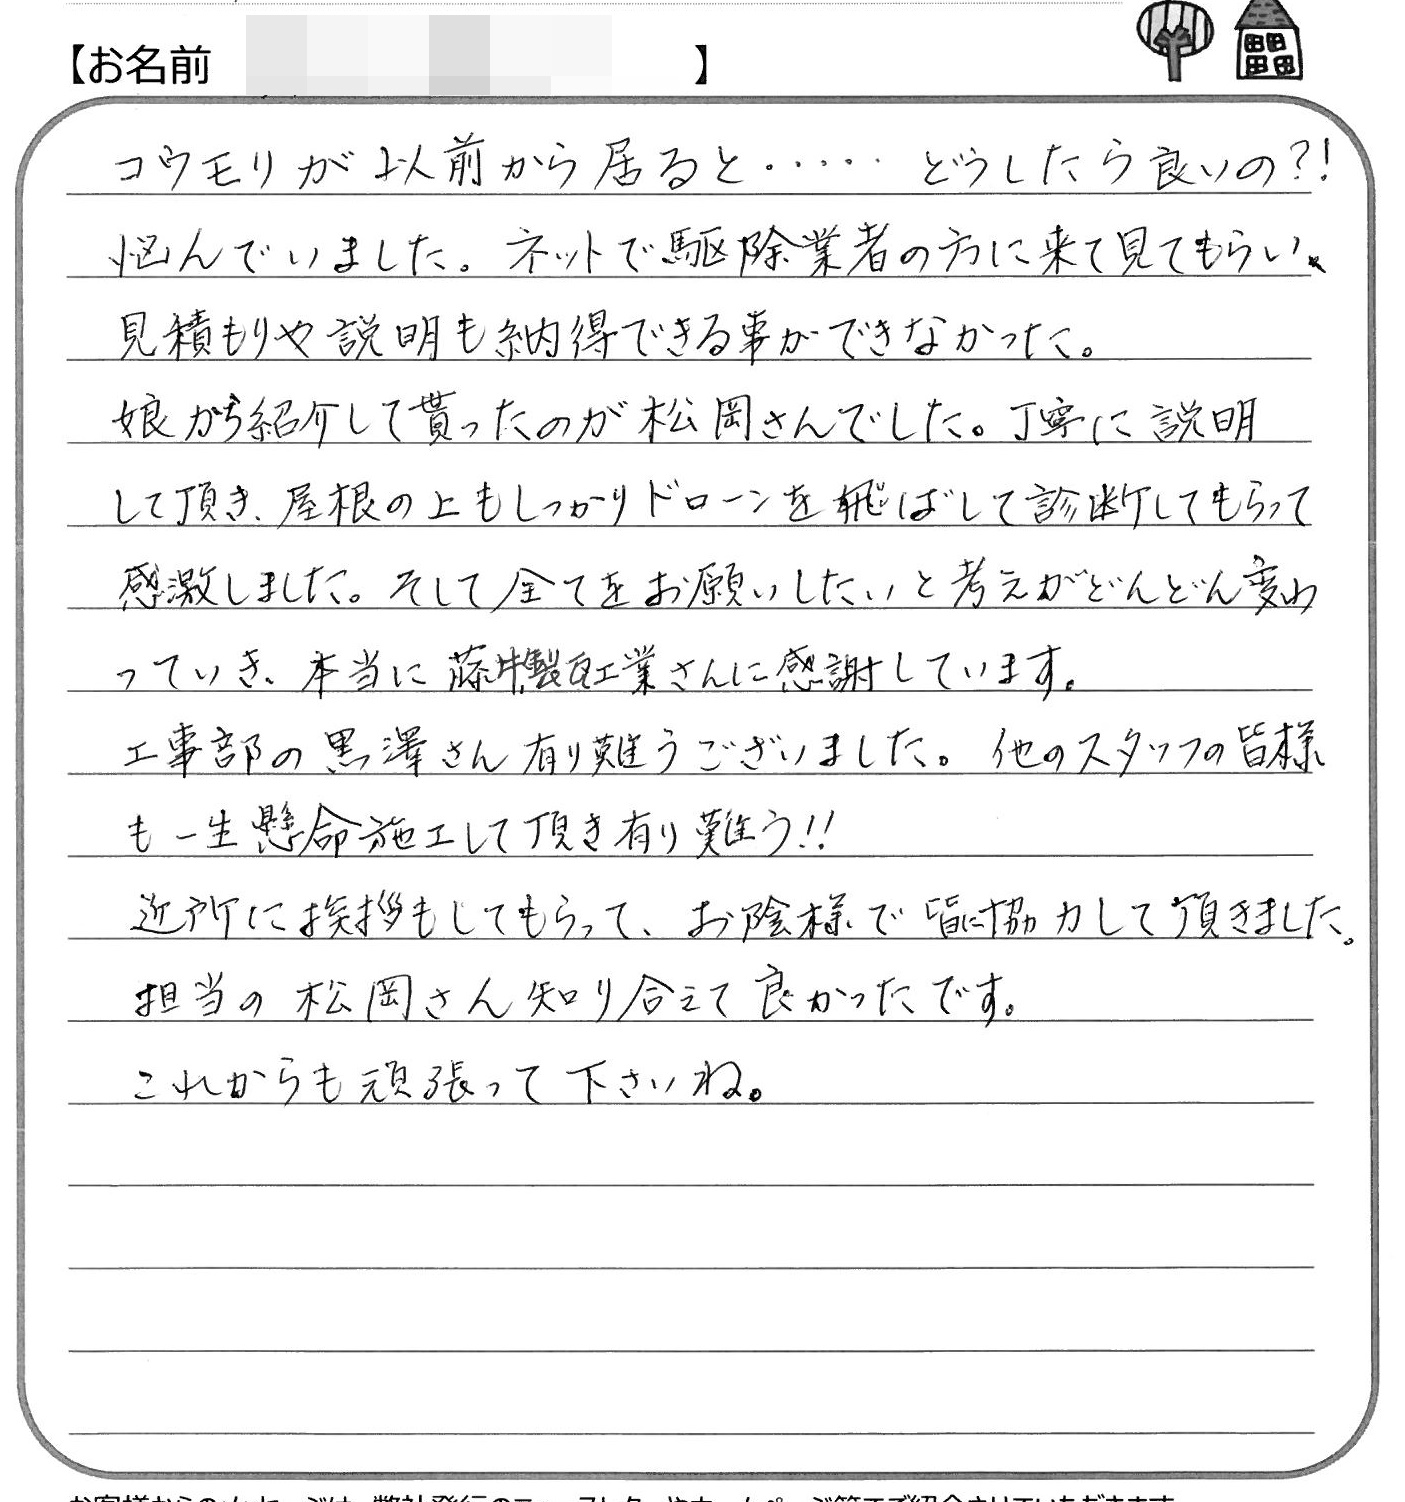 【お名前 】
コウモリが以前から居ると・・・・・どうしたら良いの?!
悩んでいました。ネットで駆除業者の方に来て見てもらい、
見積もりや説明も納得できる事ができなかった。
娘から紹介して貰ったのが松岡さんでした。丁寧に説明
して頂き、屋根の上もしっかりドローンを飛ばして診断してもらって
感激しました。そして全てをお願いしたいと考えがどんどん変わ
っていき、本当に藤井製瓦工業さんに感謝しています。
工事部の黒澤さん有り難うございました。他のスタッフの皆様
も一生懸命施工して頂き有り難う!!
近所に挨拶もしてもらって、お陰様で皆に協力して頂きました。
担当の松岡さん知り合えて良かったです。
これからも頑張って下さいね。